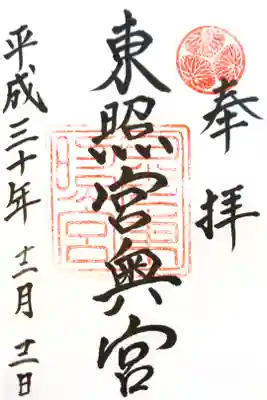 奉拝
東照宮奥宮
平成三十年十二月 日